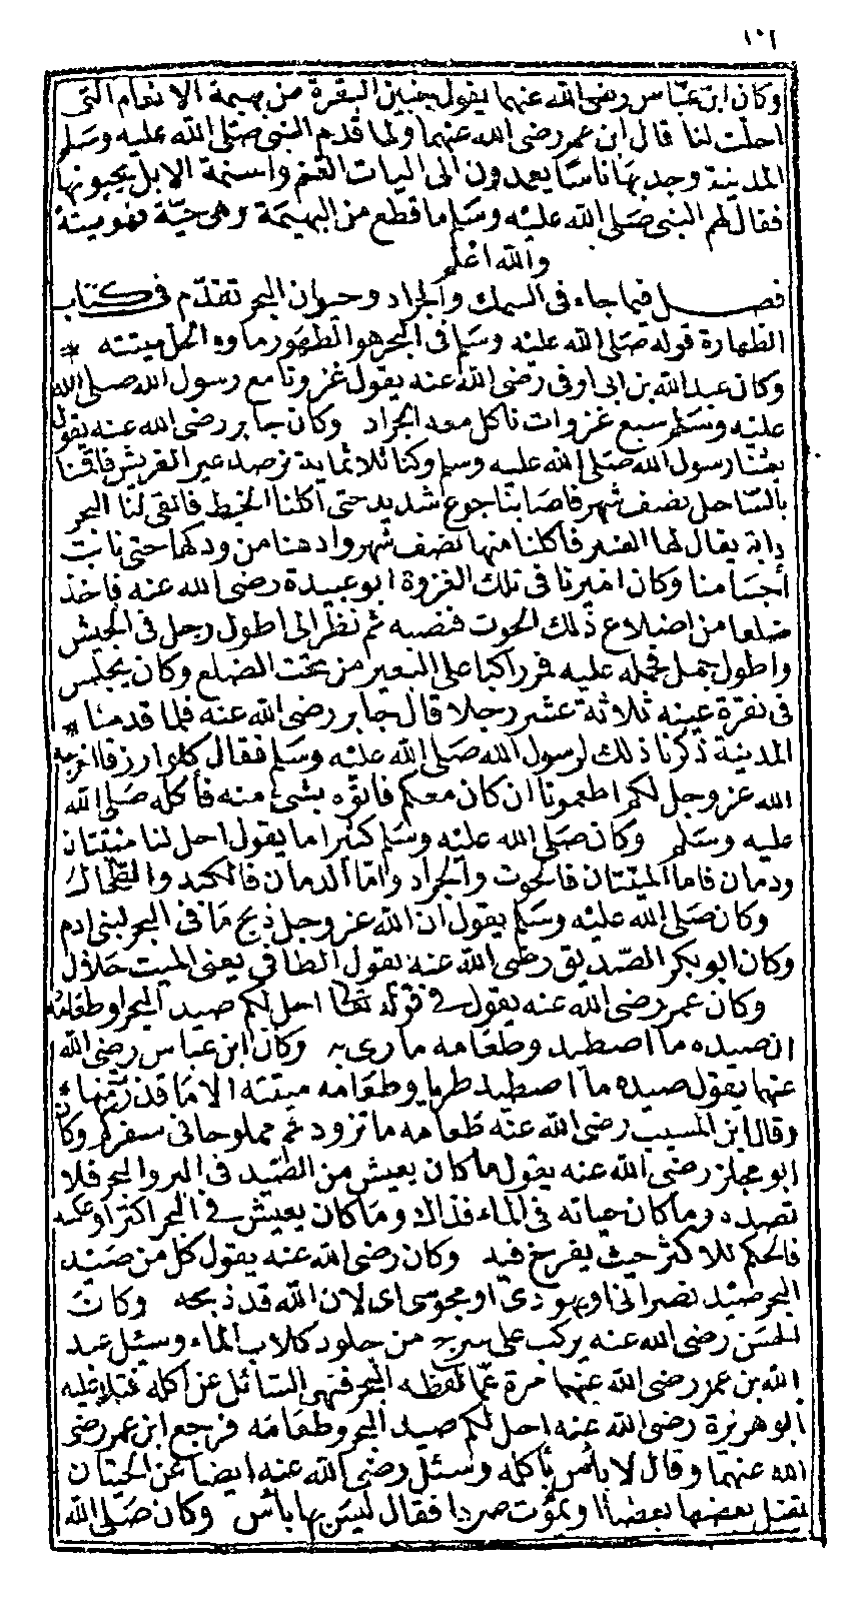 ١٠٦
وكان ابن عباس رضى الله عنهما يقول جنين البقرة من بهيمة الانعام التى
احلت لنا قال ابن عمر رضى الله عنهما ولما قدم النبى صلى الله عليه وسلم
المدينة وجد بها ناسا يعمدون الى اليات الغنم واسنمة الابل يجبونها
فقال لهم النبى صلى الله عليه وسلم ما قطع من البهيمة وهى حية فهو ميتة
والله اعلم
فصل فيما جاء فى السمك والجراد وحيوان البحر تقدم فى كتاب
الطهارة قوله صلى الله عليه وسلم فى البحر هو الطهور ماوه الحل ميتته *
وكان عبد الله بن ابى اوفى رضى الله عنه يقول غزونا مع رسول الله صلى الله
عليه وسلم سبع غزوات ناكل معه الجراد وكان جابر رضى الله عنه يقول
بعثنا رسول الله صلى الله عليه وسلم وكنا ثلاثماية نرصد عير القريش فاقمنا
بالساحل نصف شهر فاصابنا جوع شديد حتى اكلنا الخبط فالقى لنا البحر
دابة يقال لها العنبر فاكلنا منها نصف شهر وادهنا من ودكها حتى ثابت
اجسامنا وكان اميرنا فى تلك الغزوة ابو عبيدة رضى الله عنه فاخذ
ضلعا من اضلاع ذلك الحوت فنصبه ثم نظر الى اطول رجل فى الجيش
واطول جمل فحمله عليه فمر راكبا على البعير من تحت الضلع وكان يجلس
فى نقرة عينه ثلاثة عشر رجلا قال جابر رضى الله عنه فلما قدمنا *
المدينة ذكرنا ذلك لرسول الله صلى الله عليه وسلم فقال كلوا رزقا اخرجه
الله عز وجل لكم اطعمونا ان كان معكم فاتوه بشئ منه فاكله صلى الله
عليه وسلم وكان صلى الله عليه وسلم كثيرا ما يقول احل لنا ميتتان
ودمان فاما الميتتان فالحوت والجراد واما الدمان فالكبد والطحال
وكان صلى الله عليه وسلم يقول ان الله عز وجل ذبح ما فى البحر لبنى ادم
وكان ابو بكر الصديق رضى الله عنه يقول الطافى يعنى الميت حلال
وكان عمر رضى الله عنه يقول فى قوله تعالى احل لكم صيد البحر وطعامه
ان صيده ما اصطيد وطعامه ما رمى به وكان ابن عباس رضى الله
عنهما يقول صيده ما اصطيد طريا وطعامه ميتته الا ما قذرتمنها *
وقال ابن المسيب رضى الله عنه طعامه ما تزودتم مملوحا فى سفركم وكان
ابو مجلز رضى الله عنه يقول ما كان يعيش من الصيد فى البر والبحر فلا
تصده وما كان حياته فى الماء فذاك وما كان يعيش فى البحر اكثر او عكسه
فالحكم للاكثر حيث يفرخ فيه وكان رضى الله عنه يقول كل من صيد
البحر صيد نصرانى او يهودى او مجوسى اى لان الله قد ذبحه وكان
الحسن رضى الله عنه يركب على سرج من جلود كلاب الماء وسئل عبد
الله بن عمر رضى الله عنهما مرة عما لفظه البحر فنهى السائل عن اكله فتلا عليه
ابو هريرة رضى الله عنه احل لكم صيد البحر وطعامه فرجع ابن عمر رضى
الله عنهما وقال لا باس باكله وسئل رضى الله عنه ايضا عن الحيتان
يقتل بعضها بعضا او تموت صردا فقال ليس بها باس وكان صلى الله